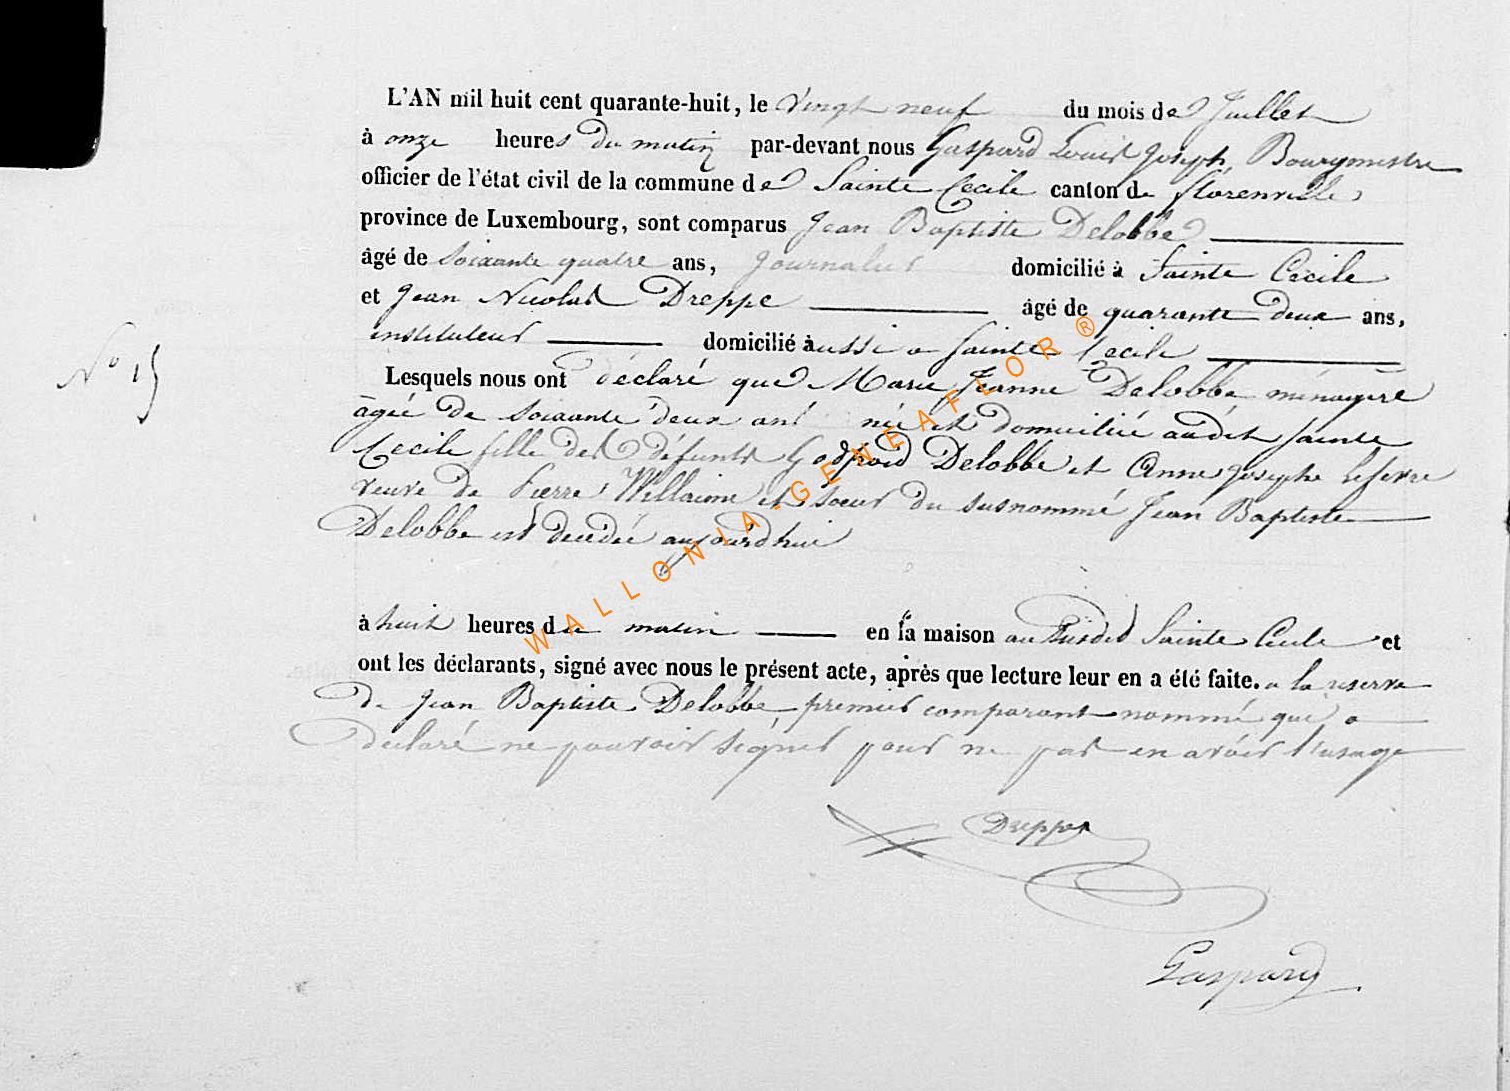 L'AN mil huit cent quarante-huit, le vingt neuf du mois de Juillet
à onze heures du matin par-devant nous Gaspard Louis Joseph, Bourgmestre
officier de l'état civil de la commune de Sainte Cecile canton de florenville
province de Luxembourg, sont comparus Jean Baptiste Delobbe
âgé de soixante quatre ans, journalier domicilié à Sainte Cecile
et Jean Nicolas Dreppe âgé de quarante deux ans,
instituteur domicilié aussi a Sainte Cecile
N° 15
Lesquels nous ont déclaré que Marie Jeanne Delobbe ménagère
âgée de soixante deux ans née et domiciliée audit Sainte
Cecile fille des défunts Godfroid Delobbe et Anne Josephe Lefevre
veuve de Pierre Willaime et soeur du susnommé Jean Baptiste
Delobbe est decedée aujourdhui
à huit heures du matin en la maison au Sainte Cecile et
ont les déclarants, signé avec nous le présent acte, après que lecture leur en a été faite. a la reserve
de Jean Baptiste Delobbe premier comparant nommé qui a
declaré ne pouvoir signer pour ne pas en avoir l'usage
Dreppe
Gaspard
WALLONIA-GENEAFLOR®